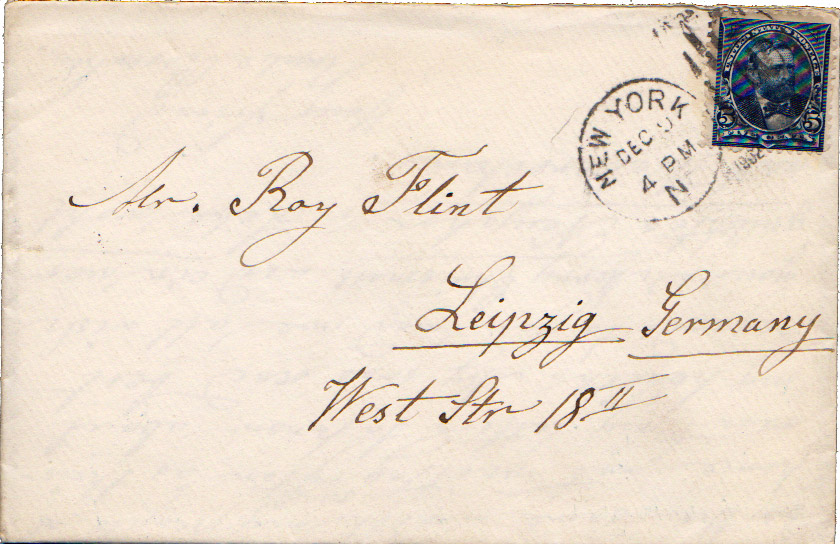 UNITED STATES POSTAGE
5 5
FIVE CENTS
NEW YORK
DEC
4 P.M.
N
1902
Mr. Roy Flint
Leipzig Germany
West Str 18 II